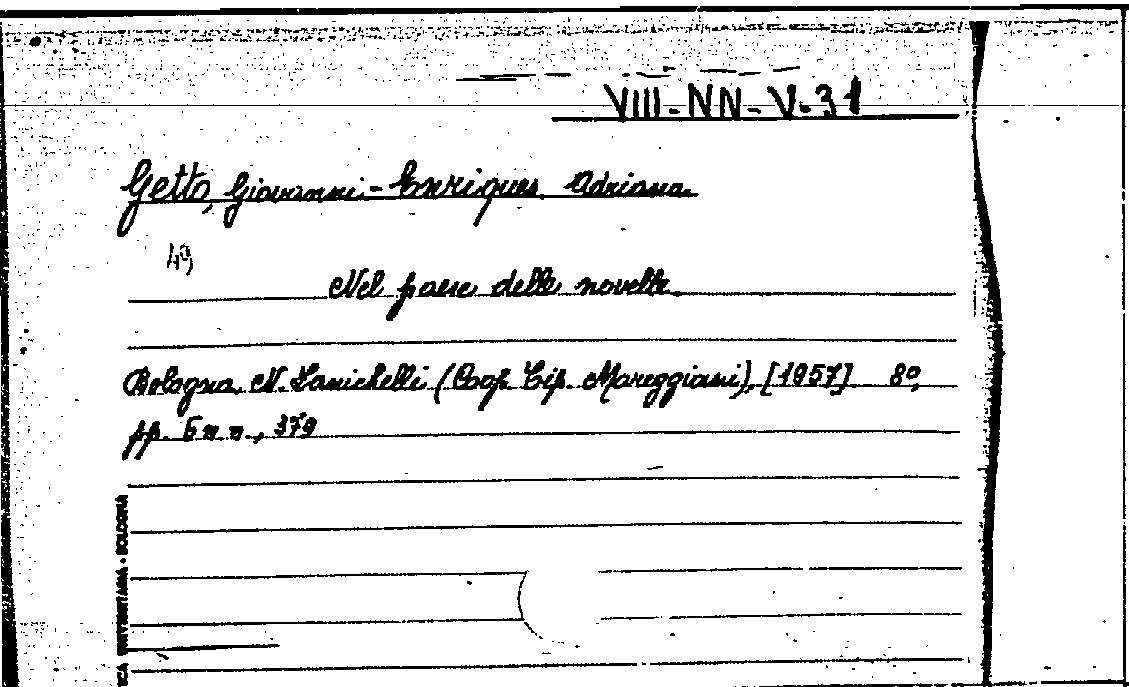 VIII-NN-V-31
Getto, Giovanni - Enriques Adriana
Nel paese delle novelle.
Bologna, N. Zanichelli (Coop. Tip. Mareggiani), [1957] 8º,
pp. 5 n.n., 379
UNIVERSITARIA • BOLOGNA